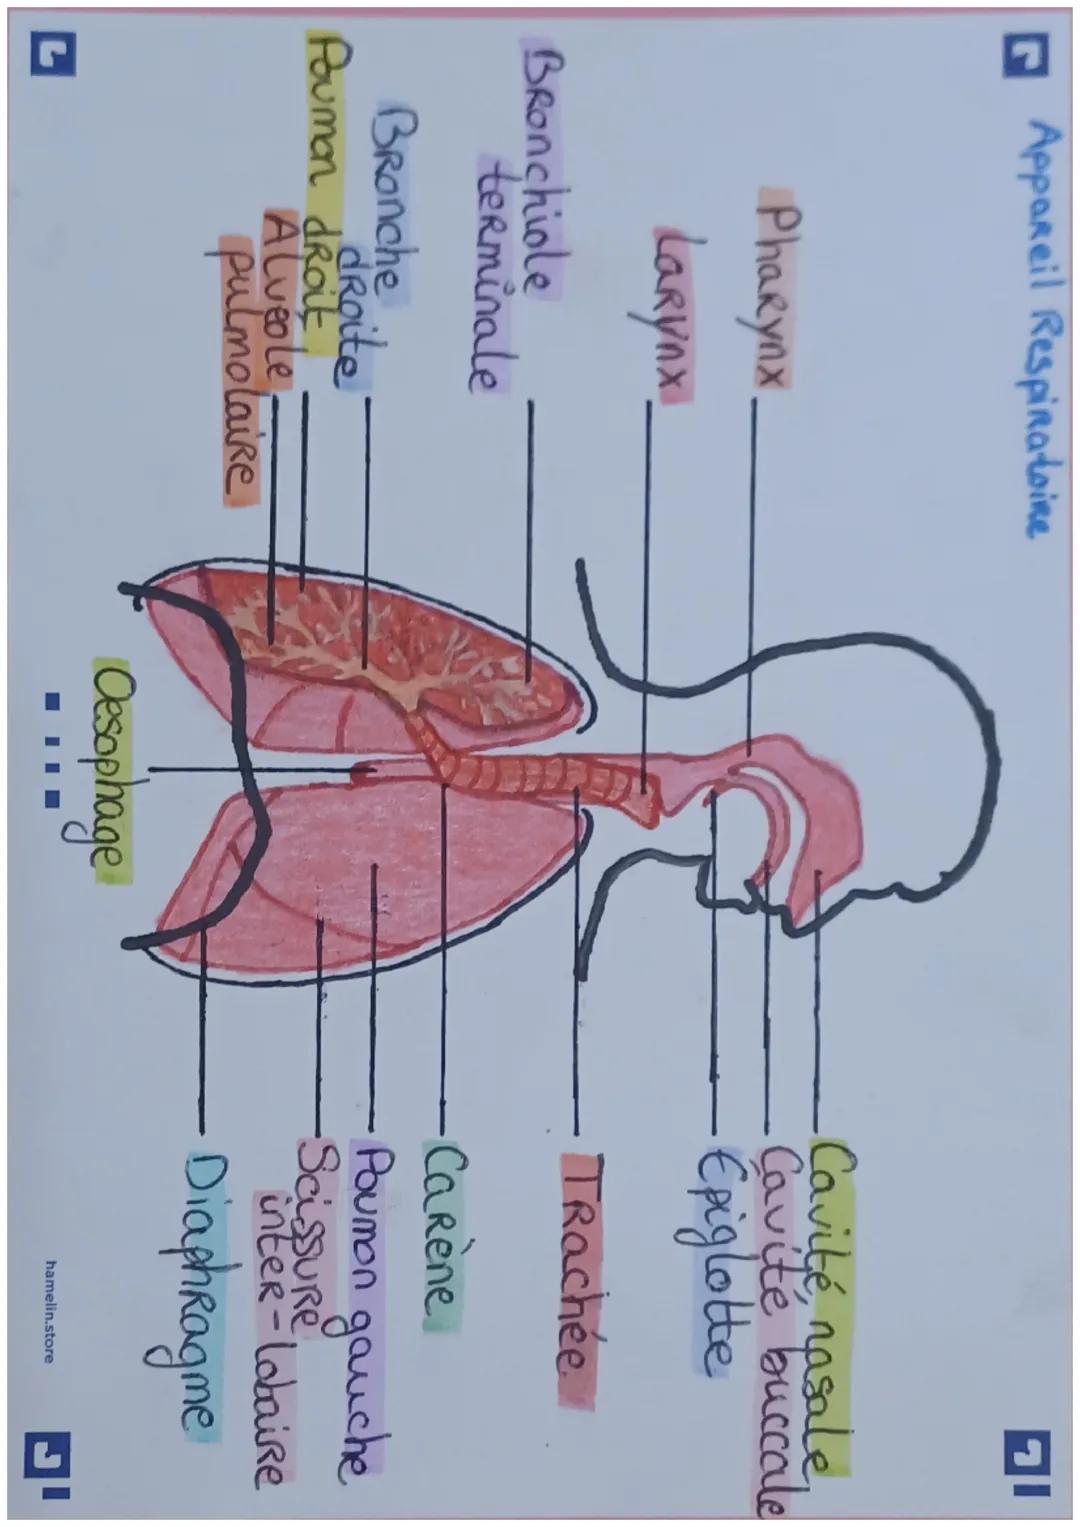 Appareil Respiratoire
Pharynx
Larynx
Bronchiole
terminale
Bronche
droite
Poumon droit
Alvéole
pulmolaire
Cavité nasale
Cavité buccale
Epiglotte
Trachée
Carène
Poumon gauche
Scissure
inter-lobaire
Diaphragme
Oesophage
hamelin.store